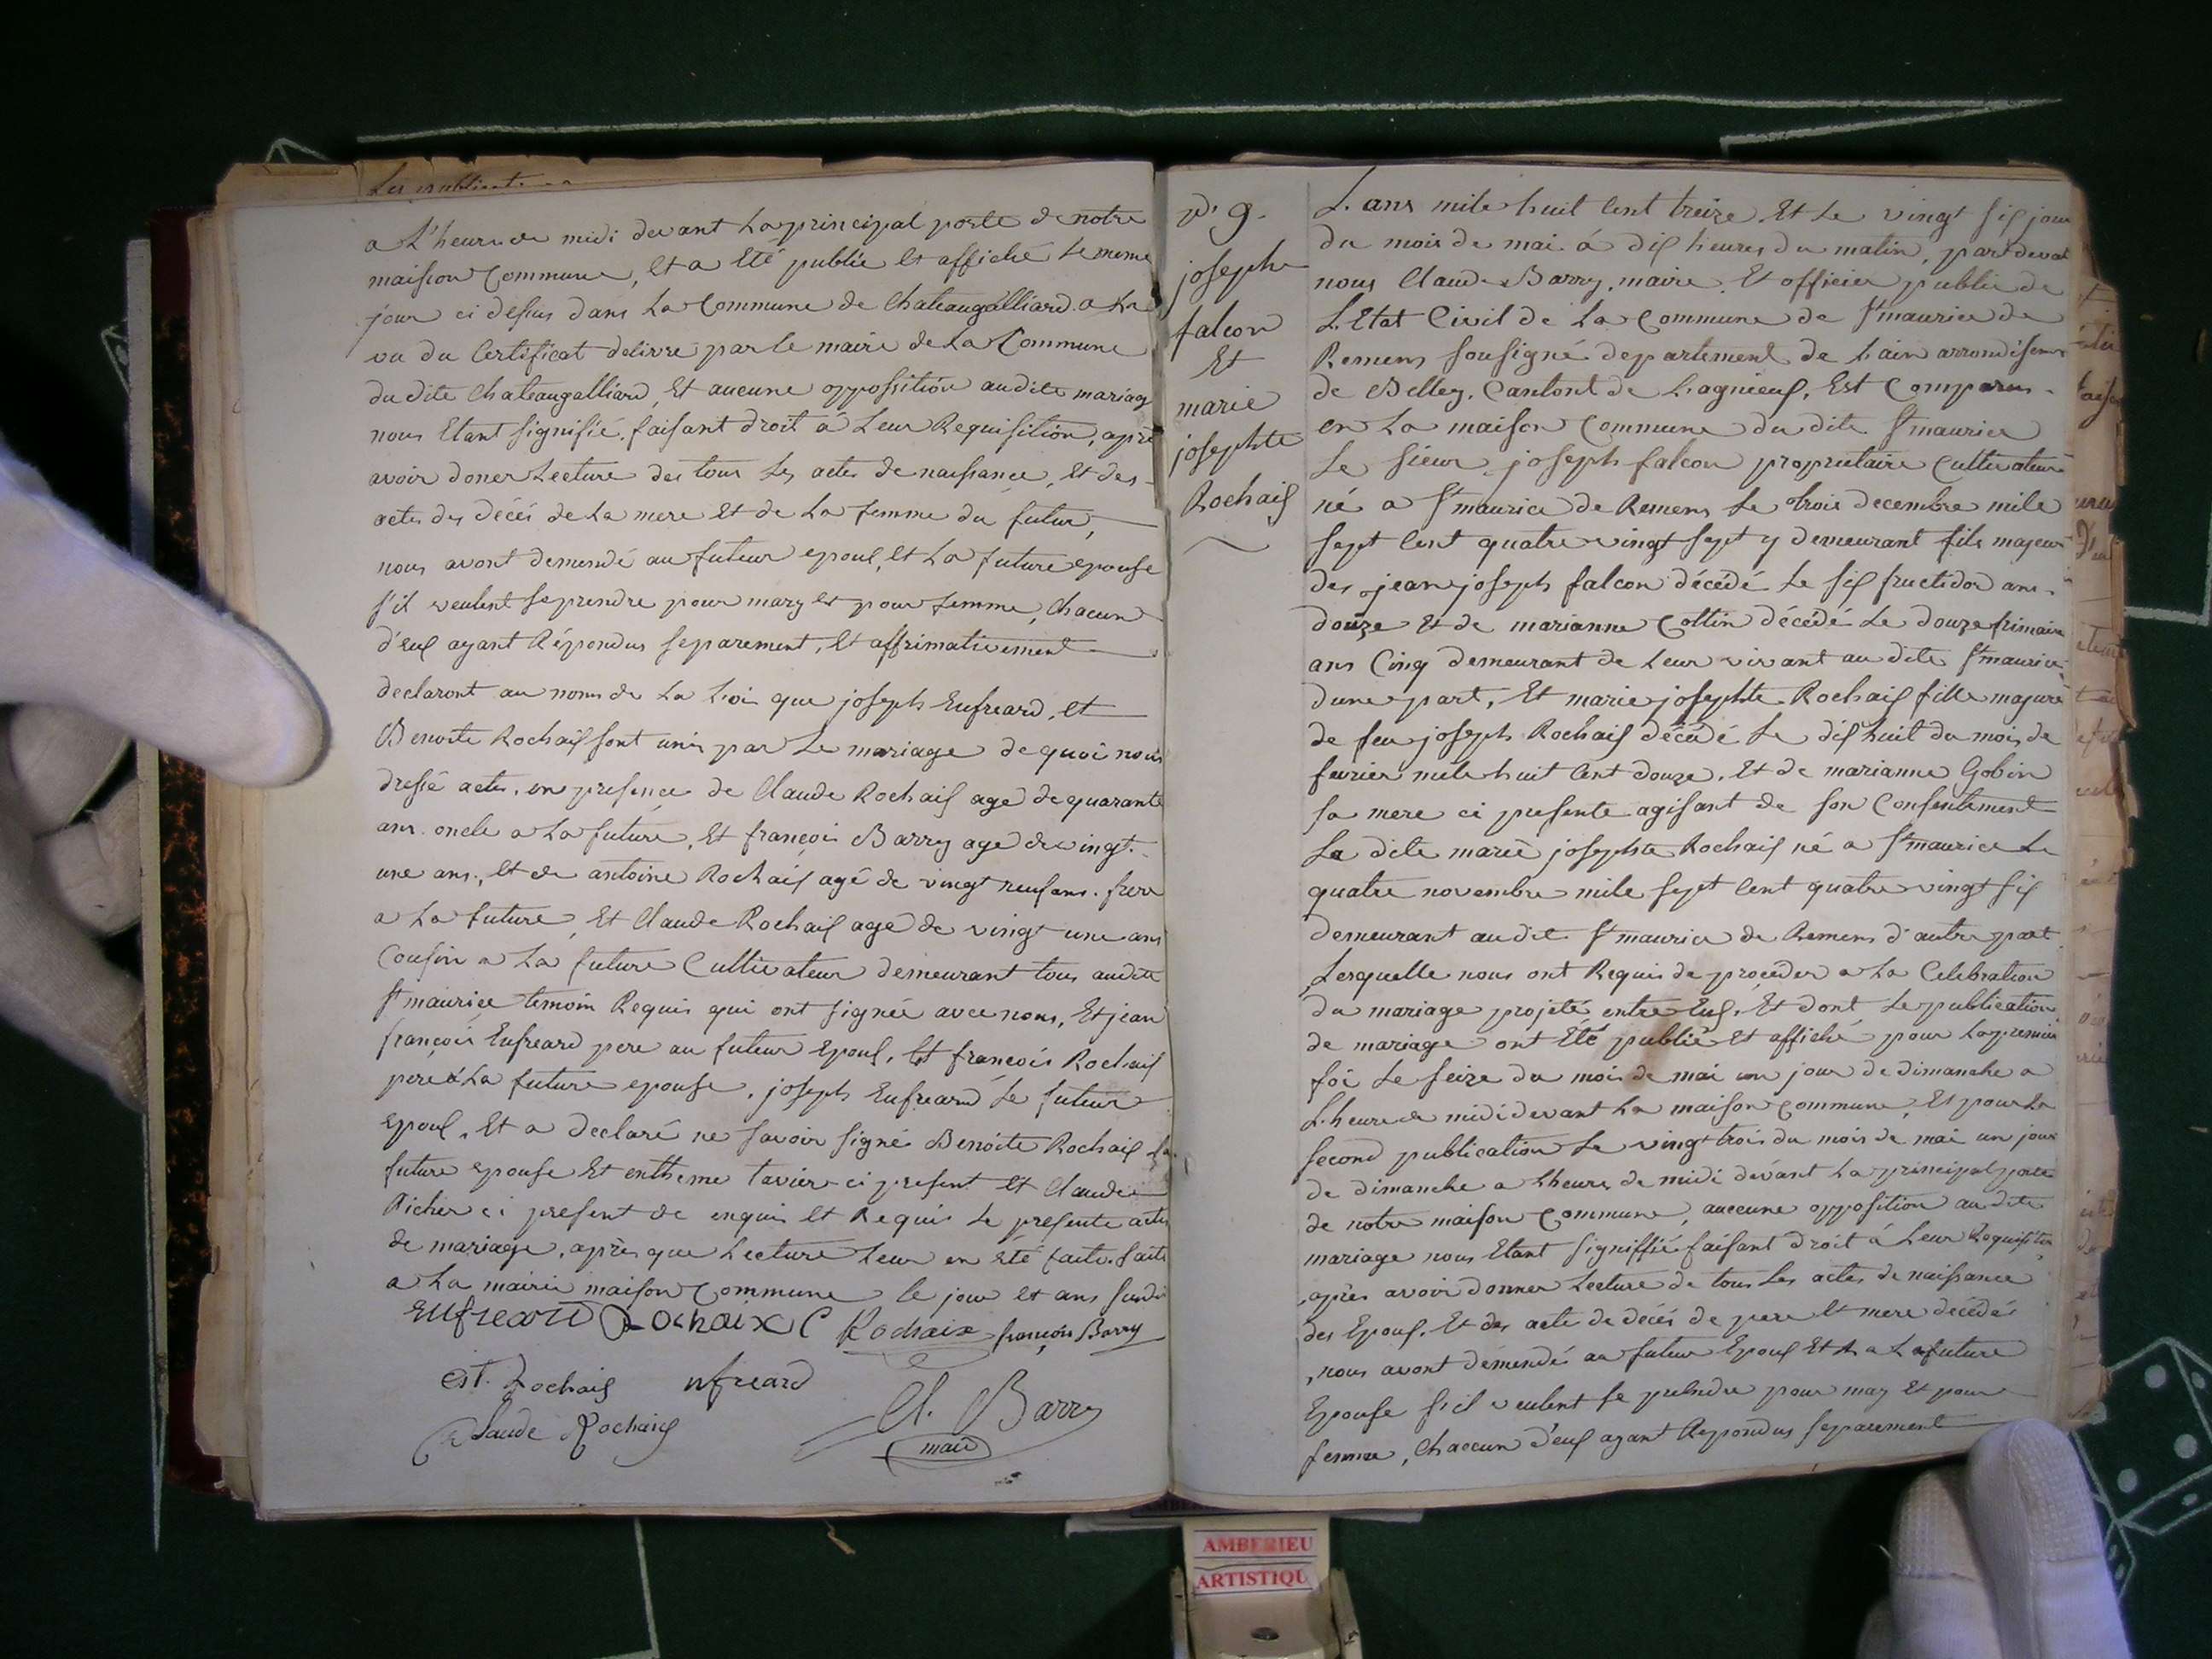 Les publications
a L'heure de midi devant La principal porte de notre
maison Commune, Et a Eté publie Et affiché Le meme
jour ci desus dans La Commune de Chateaugalliard a La
vu du Certificat delivre par le maire de La Commune
du dite Chateaugalliard, Et aucune oppossition au dite mariag
nous Etant signifié, faisant droit á Leur Requisition, aprè
avoir doner Lecture des tous Les actes de naissance, Et des
actes des décès de La mere Et de La femme du futur,
nous avont demendé au futeur epoux, Et La future epouse
s'il veulent se prendre pour mary et pour femme, Chacun
d'eux ayant Répondus separement, Et affrimativement
declaront au noms de La Loi que joseph Eufreard, et
Benoite Rochaix sont unis par Le mariage de quoi nous
dressé actes, en presence de Claude Rochaix agé de quarante
ans. oncle a La future, Et françois Barry agé de vingt-
une ans, Et de antoine Rochaix agé de vingt neuf ans. frere
a La future, Et Claude Rochaix agé de vingt une ans
Cousin a La future Cultivateur demeurant tous audite
St maurice temoin Requis qui ont signée avec nous, Et jean
françois Eufreard pere au futeur Epoux, Et francois Rochaix
pere á La future epouse, joseph Eufreard Le futeur
Epoux, Et a declaré ne savoir signé Benoite Rochaix La
future epouse Et entheme tavier ci present Et Claude
Richer ci present de enquis Et Requis Le presente actes
de mariage, après que Lecture Leur en Eté faite. faite
a La mairie maison Commune le jour et ans susdi
Eufreard Rochaix C Rochaix françois Barry
At. Rochaix nfreard
Claude Rochaix Cl. Barry
maire
No 9.
josephe
falcon
Et
marie
josephte
Rochaix
L. ans mile huit Cent treize Et Le vingt six jour
du mois de mai á dix heures du matin, par devat
nous Claude Barry, maire Et officier publie de
L. Etat Civil de La Commune de St maurice de
Remens sousigné departement de L'ain arrondisemt
de Belley, Cantont de Lagnieux, Est Comparus
en La maison Commune du dite St maurice
Le sieur joseph falcon propriétaire Cultivateur
né a St maurice de Remens Le trois decembre mile
sept Cent quatre vingt sept y demeurant fils majeur
des jean joseph falcon décédé Le six fructidor ans
douze Et de marianne Collin décédé Le douze frimaire
ans Cinq demeurant de Leur vivant au dite St maurice
dune part, Et marie josephte Rochaix fille majure
de feu joseph Rochaix décédé Le dix huit du mois de
fevrier mile huit Cent douze, Et de marianne Gobin
sa mere ci presente agisant de son Consentement
La dite marie josephte Rochaix né a St maurice Le
quatre novembre mile sept Cent quatre vingt six
demeurant au dit St maurice de Remens d'autre part
Lesquelle nous ont Requis de procéder a La Celebration
du mariage projeté entre Eux, Et dont Le publication
de mariage ont Eté publié Et affiché pour La premier
foi Le seize du mois de mai un jour de dimanche a
L'heure de midi devant La maison Commune, Et pour La
second publication Le vingt trois du mois de mai un jour
de dimanche a L'heure de midi devant La principal porte
de notre maison Commune, auccune opposition au dite
mariage nous Etant signiffié faisant droit á Leur Requisition
, après avoir donner Lecture de tous Les actes de naissance
des Epoux, Et des acte de décès de pere Et mere décédé
, nous avont demendé au futeur Epoux Et a La future
Epouse s'il veulent se prendre pour may Et pour
femme, Chaccun d'eux ayant Repondus separement